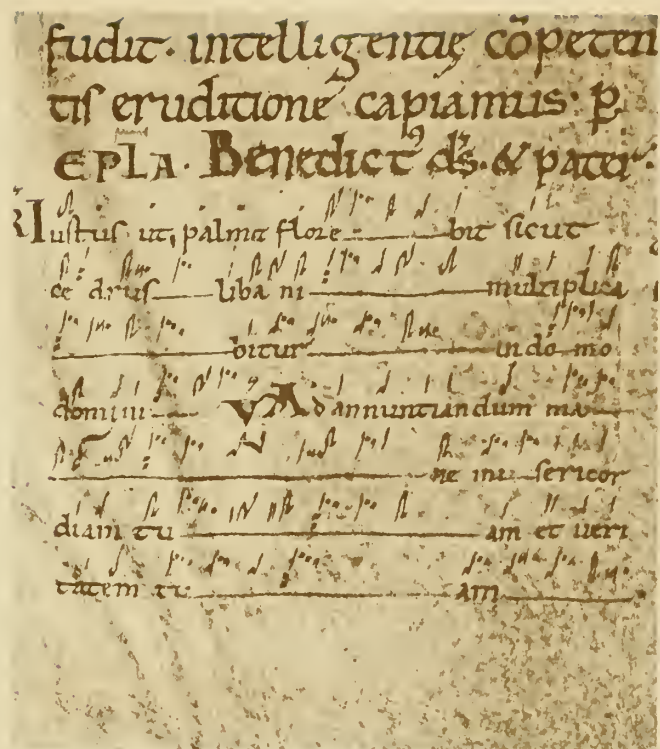 fudit · intelligentię cōpeten
tis eruditione capiamus · P
EPLA · Benedict⁹ ds̄ · & pater ·
R Iustus ut palma flore bit sicut
ce drus liba ni multiplica
bitur in do mo
domini V Ad annuntiandum ma
ne mi sericor
diam tu am et ueri
tatem tu am